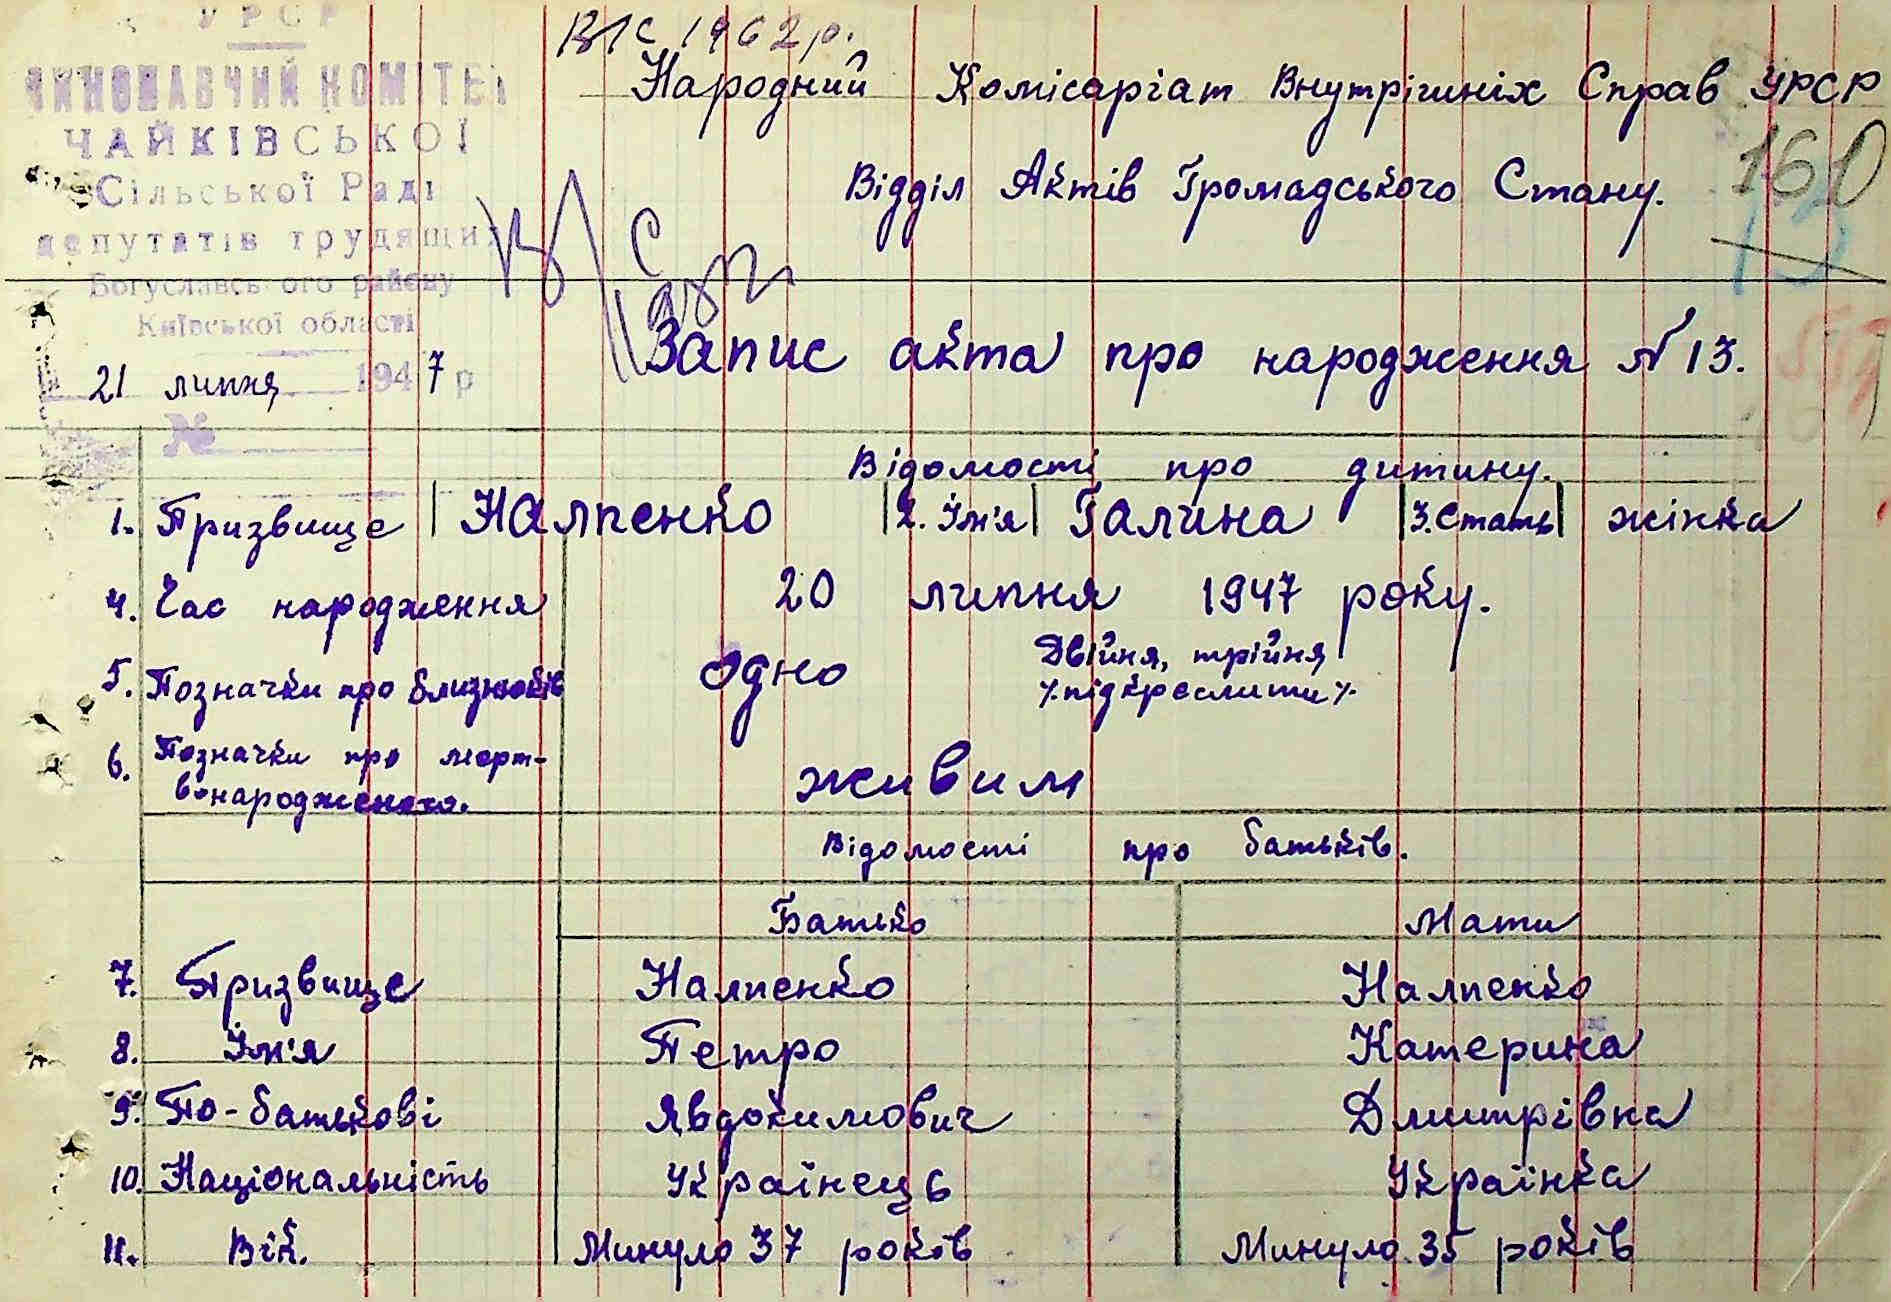 УРСР
ВИКОНАВЧИЙ КОМІТЕТ
ЧАЙКІВСЬКОЇ
Сільської Раді
депутатів трудящих
Богуславського району
Київської області
21 липня 1947 р
№
ВІС 1962 р.
Народний Комісаріат Внутрішніх Справ УРСР
160
13
Відділ Актів Громадського Стану.
Запис акта про народження N 13.
Відомості про дитину.
1. Призвище Налпенко 2. Ім'я Галина 3. Стать жінка
4. Час народження 20 липня 1947 року.
5. Позначки про близнюків одно Двійня, трійня,
/.підкреслити/.
6. Позначки про мерт-
вонародження. живим
Відомості про батьків.
Батько Мати
7. Призвище Налпенко Налпенко
8. Ім'я Петро Катерина
9. По-батькові Явдокимович Дмитрівна
10. Національність Українець Українка
11. Вік. Минуло 37 років Минуло 35 років